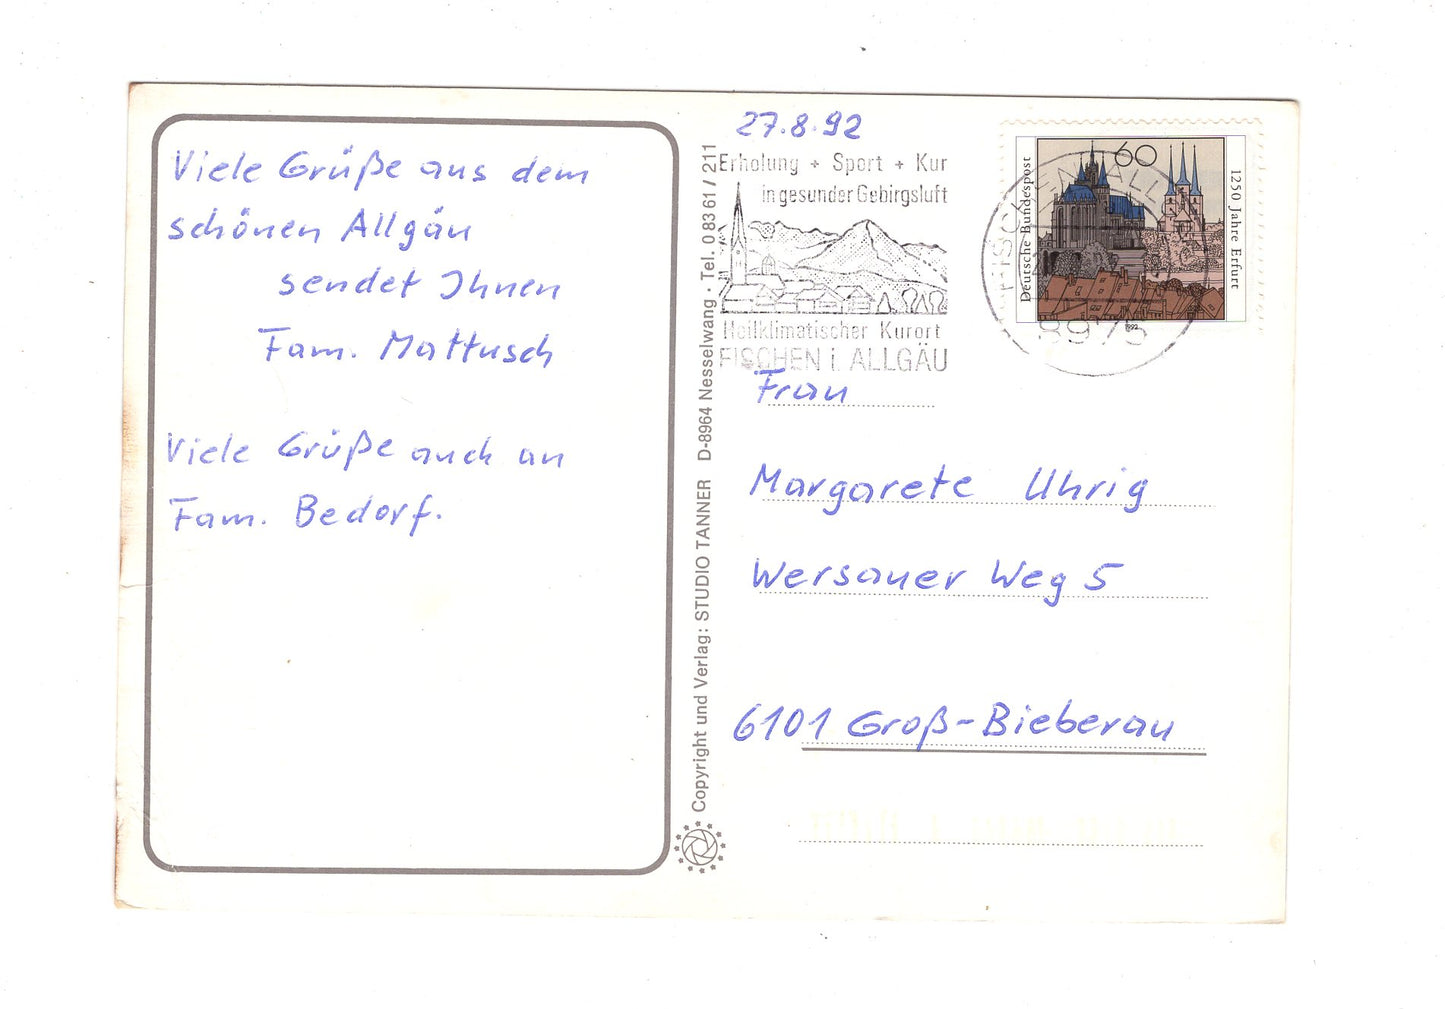 Viele Grüße aus dem
schönen Allgäu
sendet Ihnen
Fam. Mattusch
Viele Grüße auch an
Fam. Bedorf.
Copyright und Verlag: STUDIO TANNER D-8964 Nesselwang · Tel. 0 83 61 / 211
27.8.92
Erholung + Sport + Kur
in gesunder Gebirgsluft
Heilklimatischer Kurort
FISCHEN i. ALLGÄU
Deutsche Bundespost
60
1250 Jahre Erfurt
1992
FISCHEN ALLG
8975
Frau
Margarete Uhrig
Wersauer Weg 5
6101 Groß-Bieberau